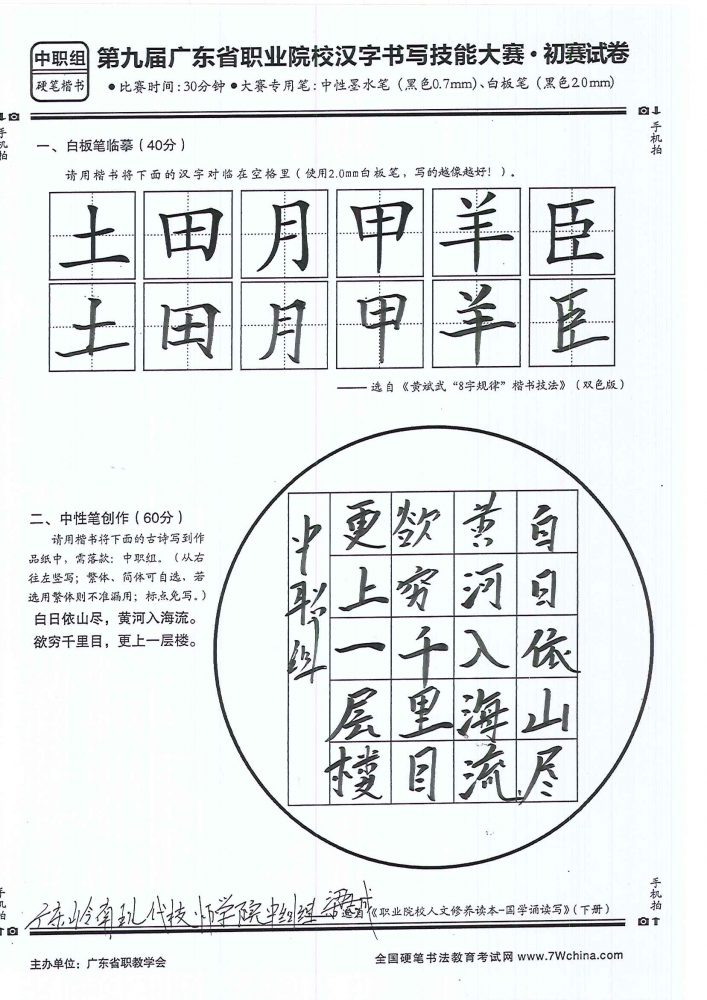 中职组
硬笔楷书
第九届广东省职业院校汉字书写技能大赛·初赛试卷
●比赛时间:30分钟●大赛专用笔:中性墨水笔(黑色0.7mm)、白板笔(黑色2.0mm)
手机拍
手机拍
一、白板笔临摹(40分)
请用楷书将下面的汉字对临在空格里(使用2.0mm白板笔,写的越像越好!)。
土田月甲羊臣
土田月甲羊臣
——选自《黄斌武“8字规律”楷书技法》(双色版)
二、中性笔创作(60分)
请用楷书将下面的古诗写到作
品纸中,需落款:中职组。(从右
往左竖写;繁体、简体可自选,若
选用繁体则不准漏用;标点免写。)
白日依山尽,黄河入海流。
欲穷千里目,更上一层楼。
白日依山尽
黄河入海流
欲穷千里目
更上一层楼
中职组
手机拍
手机拍
广东岭南现代技师学院中组
选自《职业院校人文修养读本-国学诵读写》(下册)
主办单位:广东省职教学会
全国硬笔书法教育考试网 www.7Wchina.com